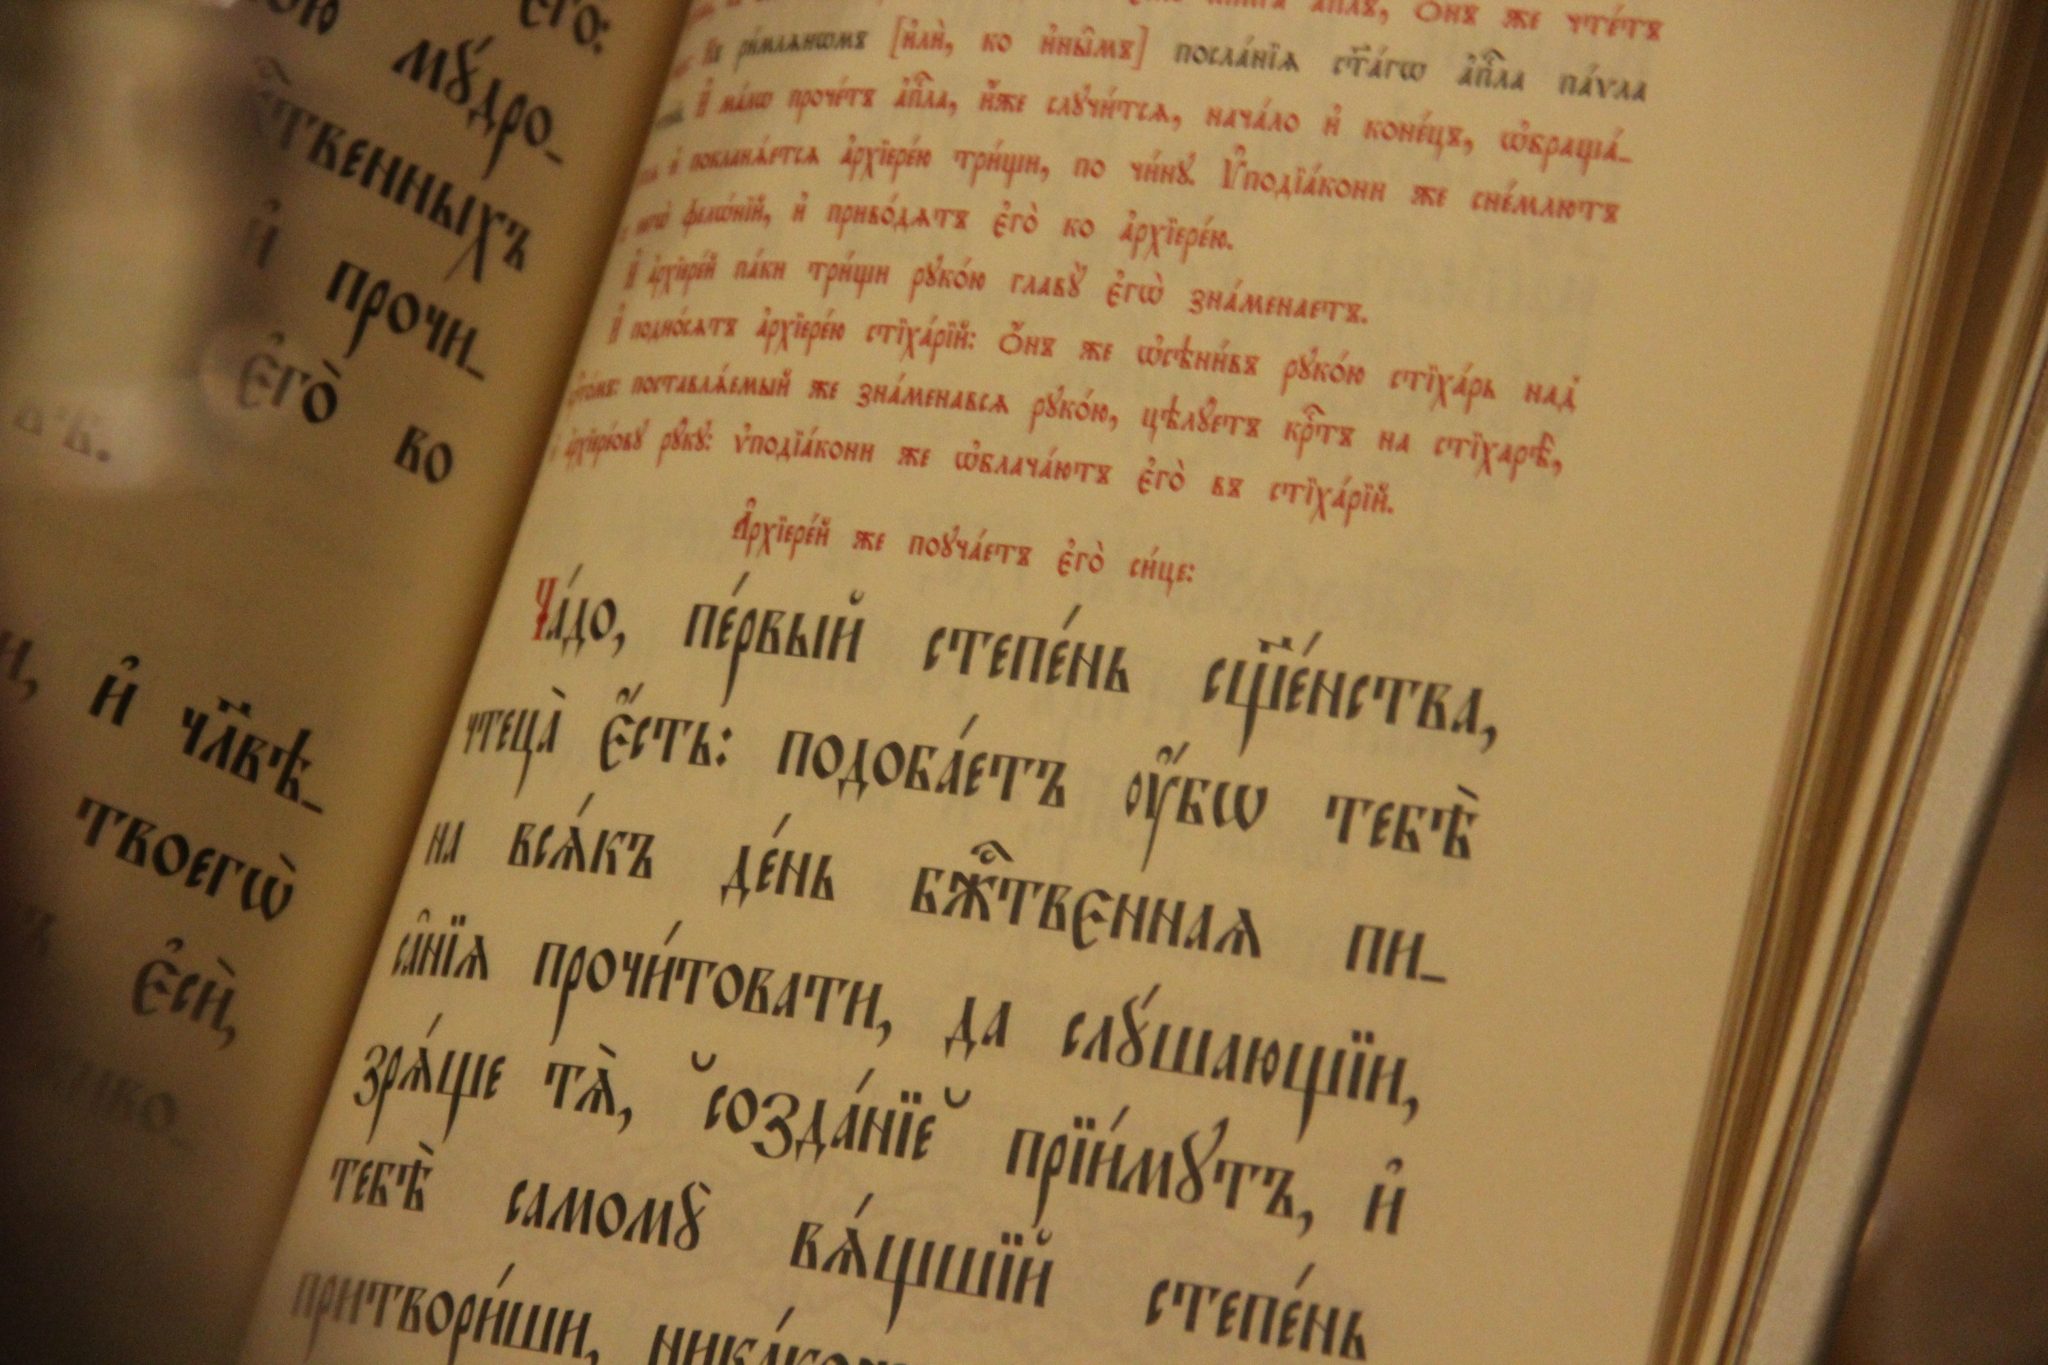 его:
мꙋ́дро-
твенныхъ
и҆ прочи-
є҆го̀ во
и҆ чл҃вѣ-
твоегѡ̀
є҆сѝ,
же чте́тъ
ри́млѧнѡмъ [и҆лѝ, ко и҆ны̑мъ] посла́нїѧ ст҃а́гѡ а҆пⷭ҇ла па́ѵла
И҆ ма́лѡ проче́тъ а҆пⷭ҇ла, и҆́же слꙋчи́тсѧ, нача́ло и҆ коне́цъ, ѡ҆браща́-
и҆ покланѧ́етсѧ а҆рхїере́ю три́щи, по чи́нꙋ. Ѵ҆подїа́кони же сне́млютъ
фело́нїй, и҆ приво́дѧтъ є҆го̀ ко а҆рхїере́ю.
И҆ а҆рхїере́й па́ки три́щи рꙋко́ю главꙋ̀ є҆гѡ̀ зна́менаетъ.
И҆ подно́сѧтъ а҆рхїере́ю стїха́рїй: Ѻ҆́нъ же ѡ҆сѣни́въ рꙋко́ю стїха́рь над̾
поставлѧ́емый же зна́менавсѧ рꙋко́ю, цѣлꙋ́етъ крⷭ҇тъ на стїхарѣ̀,
а҆рхїере́овꙋ рꙋ́кꙋ: ѵ҆подїа́кони же ѡ҆блача́ютъ є҆го̀ въ стїха́рїй.
А҆рхїере́й же поꙋча́етъ є҆го̀ си́це:
Ча́до, пе́рвый степе́нь сщ҃е́нства,
чтеца̀ є҆́сть: подоба́етъ ᲂу҆́бѡ тебѣ̀
на всѧ́къ де́нь бжⷭ҇твєннаѧ пи-
са̑нїѧ прочи́товати, да слꙋ́шающїи,
зрѧ́ще тѧ̀, ˘созда́нїе˘ прїи́мꙋтъ, и҆
тебѣ̀ самомꙋ̀ вѧ́щшїй степе́нь
притвори́ши,